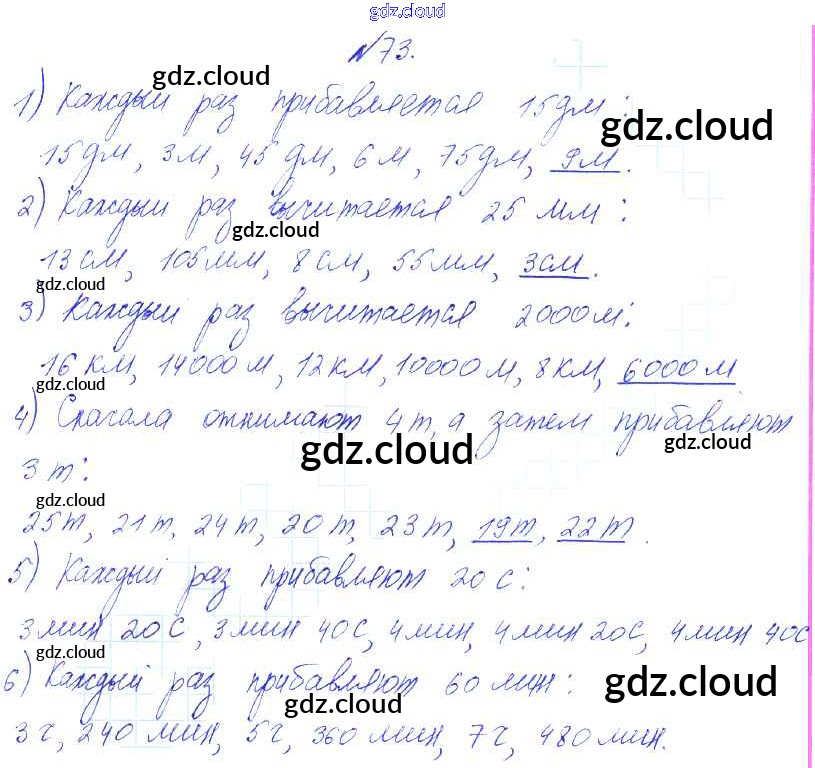 gdz.cloud
№73.
gdz.cloud
1) Каждый раз прибавляется 15дм:
gdz.cloud
15дм, 3м, 45дм, 6м, 75дм, 9м.
2) Каждый раз вычитается 25 мм:
gdz.cloud
13см, 105мм, 8см, 55мм, 3см.
gdz.cloud
3) Каждый раз вычитается 2000м:
16 км, 14000м, 12км, 10000м, 8км, 6000м
gdz.cloud
4) Сначала отнимают 4т, а затем прибавляют
gdz.cloud
gdz.cloud
3т:
gdz.cloud
25т, 21т, 24т, 20т, 23т, 19т, 22т.
5) Каждый раз прибавляют 20с:
3мин 20с, 3мин 40с, 4мин, 4мин 20с, 4мин 40с
gdz.cloud
6) Каждый раз прибавляют 60мин:
gdz.cloud
gdz.cloud
3ч, 240мин, 5ч, 360мин, 7ч, 480мин.